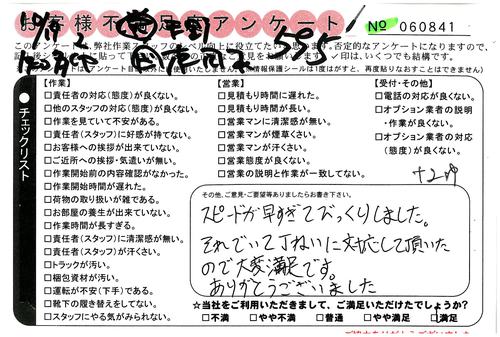 お客様不満足アンケート
No 060841
595
このアンケートは、弊社作業スタッフのレベル向上に役立てたい
否定的なアンケートになりますので、
印は、いくつでも結構です。
【作業】
□責任者の対応(態度)が良くない。
□他のスタッフの対応(態度)が良くない。
□作業を見ていて不安がある。
□責任者(スタッフ)に好感が持てない。
□お客様への挨拶が出来ていない。
□ご近所への挨拶・気遣いが無い。
□作業開始前の内容確認がなかった。
□作業開始時間が遅れた。
□荷物の取り扱いが雑である。
□お部屋の養生が出来ていない。
□作業時間が長すぎる。
□責任者(スタッフ)に清潔感が無い。
□責任者(スタッフ)が汗くさい。
□トラックが汚い。
□梱包資材が汚い。
□運転が不安(下手)である。
□靴下の履き替えをしてない。
□スタッフにやる気がみられない。
【営業】
□見積もり時間に遅れた。
□見積もり時間が長い。
□営業マンに清潔感が無い。
□営業マンが煙草くさい。
□営業マンが汗くさい。
□営業態度が良くない。
□営業の説明と作業が一致してない。
【受付・その他】
□電話の対応が良くない。
□オプション業者の説明・作業が良くない。
□オプション業者の対応(態度)が良くない。
チェックリスト
その他、ご意見・ご要望等ありましたらお書き下さい。
スピードが早すぎてびっくりしました。
それでいて丁ねいに対応して頂いた
ので大変満足です。
ありがとうございました
☆当社をご利用いただきまして、ご満足いただけたでしょうか?
□不満 □やや不満 □普通 □やや満足 □満足